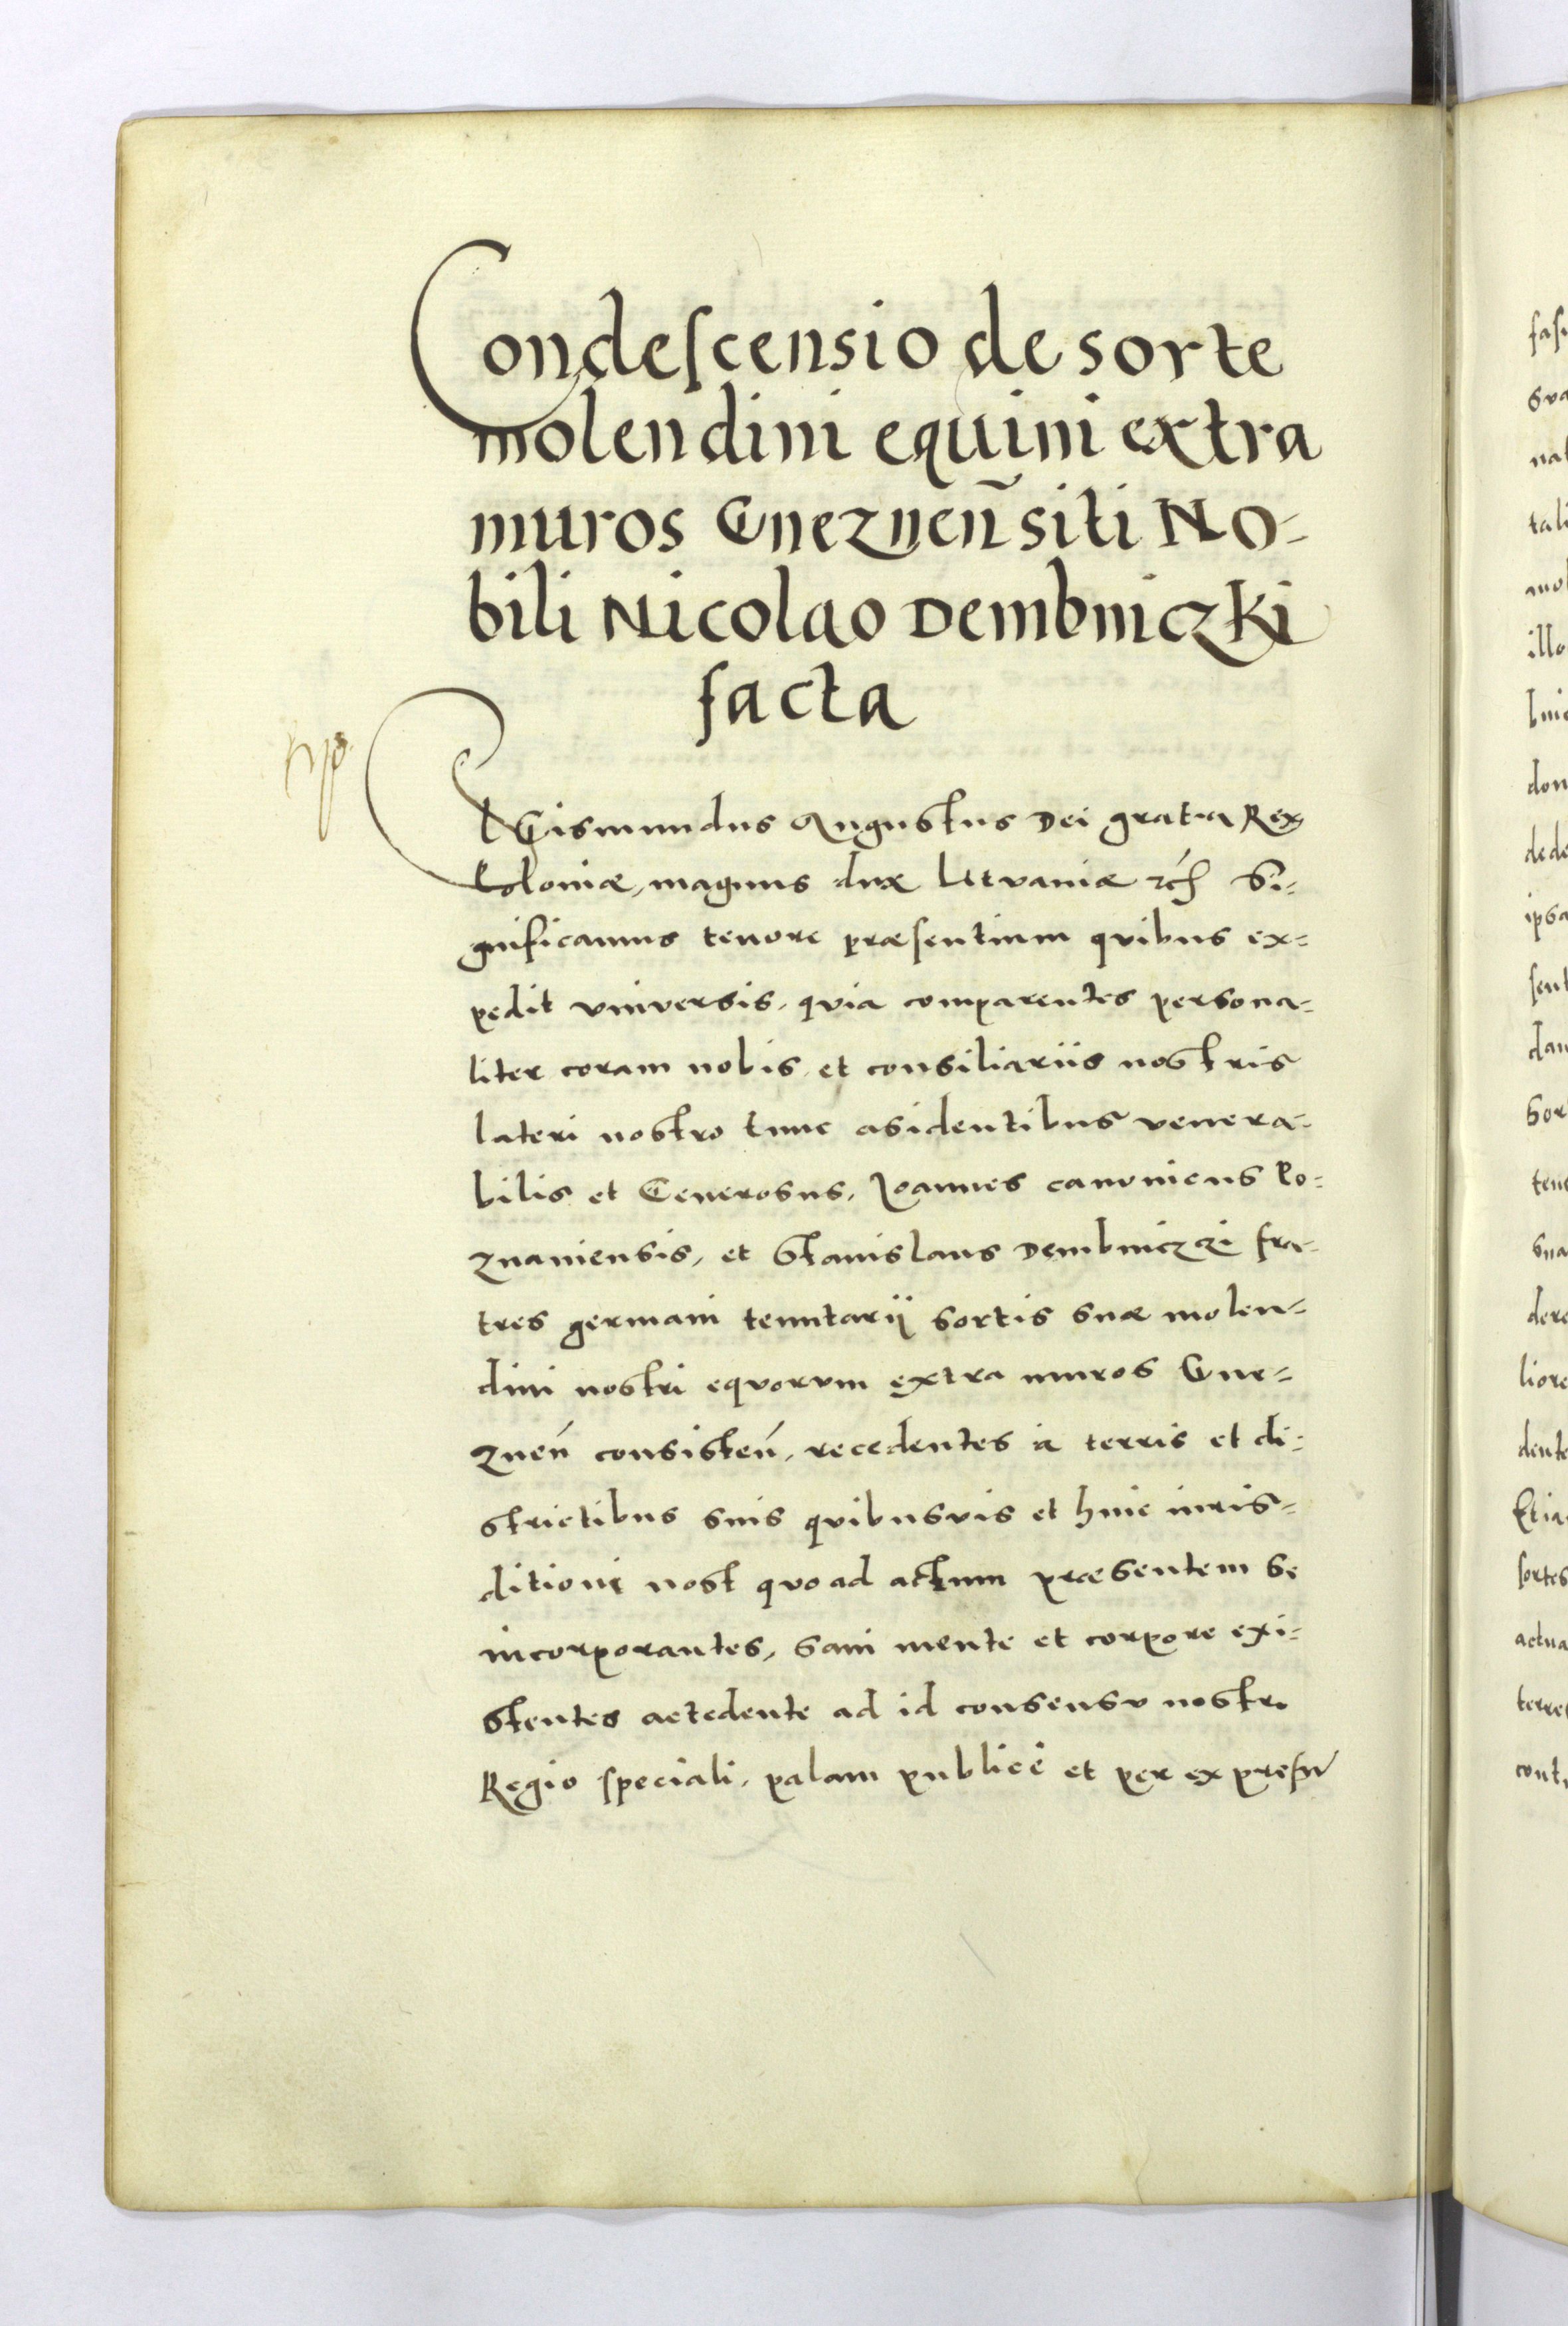 Condescensio de sorte
molendini equini extra
muros Gneznen̄ siti No-
bili Nicolao Dembniczki
facta
SIGismundus Augustus Dei gratia Rex
Poloniæ, magnus dux Lituaniæ etc̄ Si-
gnificamus tenore præsentium quibus ex-
pedit vniversis, quia comparentes persona-
liter coram nobis et consiliariis nostris
lateri nostro tunc asidentibus venera-
bilis et Generosus, Joannes canonicus Po-
znaniensis, et Stanislaus Dembniczki fra-
tres germani tenutarij sortis suæ molen-
dini nostri equorum extra muros Gne-
znen̄ consisten̄, recedentes à terris et di-
strictibus suis quibusvis et huic iuris-
ditioni nost quoad actum præsentem se
incorporantes, sani mente et corpore exi-
stentes accedente ad id consensu nostro
Regio speciali, palam publicè et per expressū
fas
sua
nat
tali
mol
illo
bnic
don
dede
ipsa
sent
dan
sor
tenu
sua
dere
liore
dente
Etia
sortes
actua
terre
cont